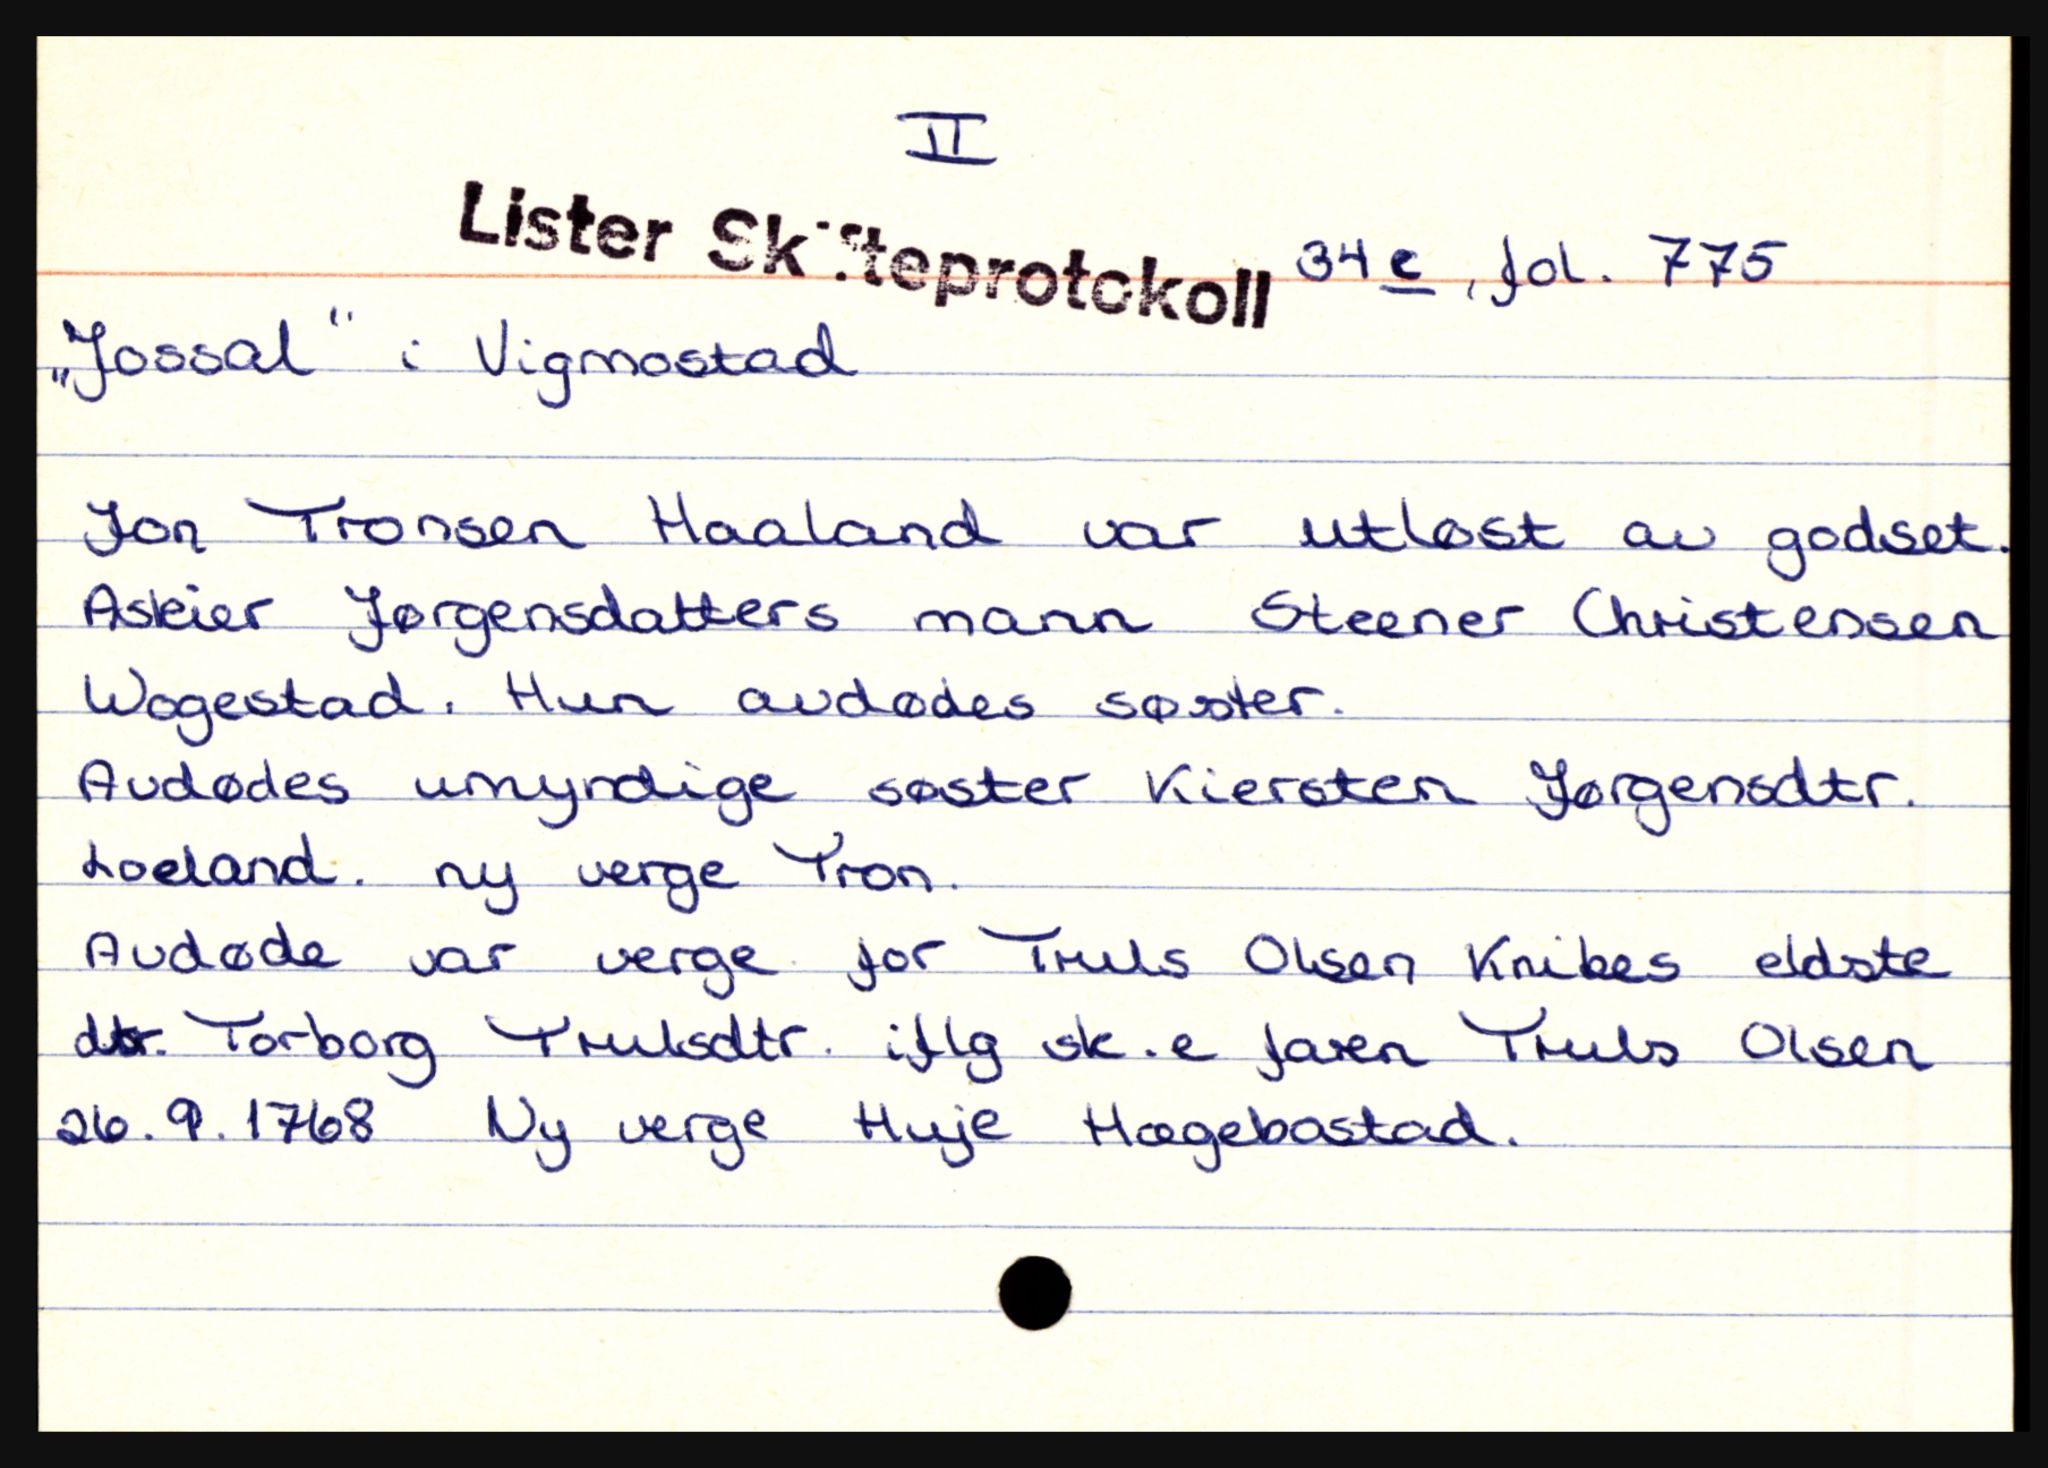 II
Lister Skifteprotokoll 34 c, fol. 775
„Jossal“ i Vigmostad
Jon Tronsen Haaland var utløst av godset.
Askier Jørgensdatters mann Steener Christensen
Wogestad. Hun avdødes søster.
Avdødes umyndige søster Kiersten Jørgensdtr.
Loeland. ny verge Tron.
Avdøde var verge for Truls Olsen Knibes eldste
dtr. Torborg Trulsdtr. iflg sk.e faren Truls Olsen
26.9.1768 Ny verge Huje Hægebostad.